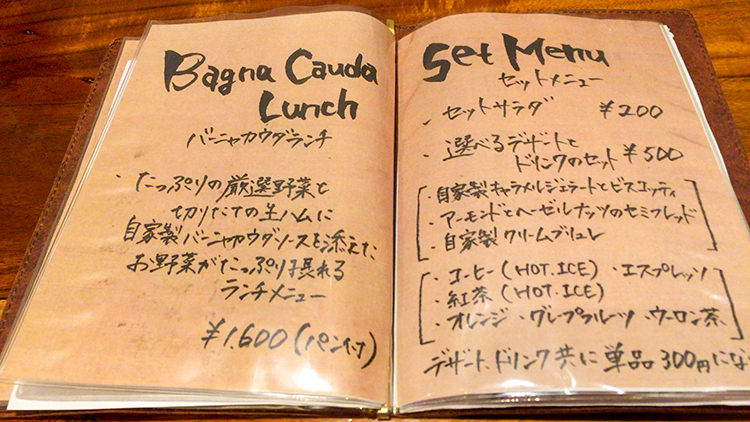 Bagna Cauda
Lunch
バーニャカウダランチ
・たっぷりの厳選野菜と
切りたての生ハムに
自家製バーニャカウダソースを添えた
お野菜がたっぷり採れる
ランチメニュー
¥1,600(パン付)
Set Menu
セットメニュー
・セットサラダ ¥200
・選べるデザートと
ドリンクのセット ¥500
・自家製キャラメルジェラートとビスコッティ
・アーモンドとヘーゼルナッツのセミフレッド
・自家製クリームブリュレ
・コーヒー(HOT.ICE) ・エスプレッソ
・紅茶(HOT.ICE)
・オレンジ ・グレープフルーツ ・ウーロン茶
デザート、ドリンク共に単品300円にな